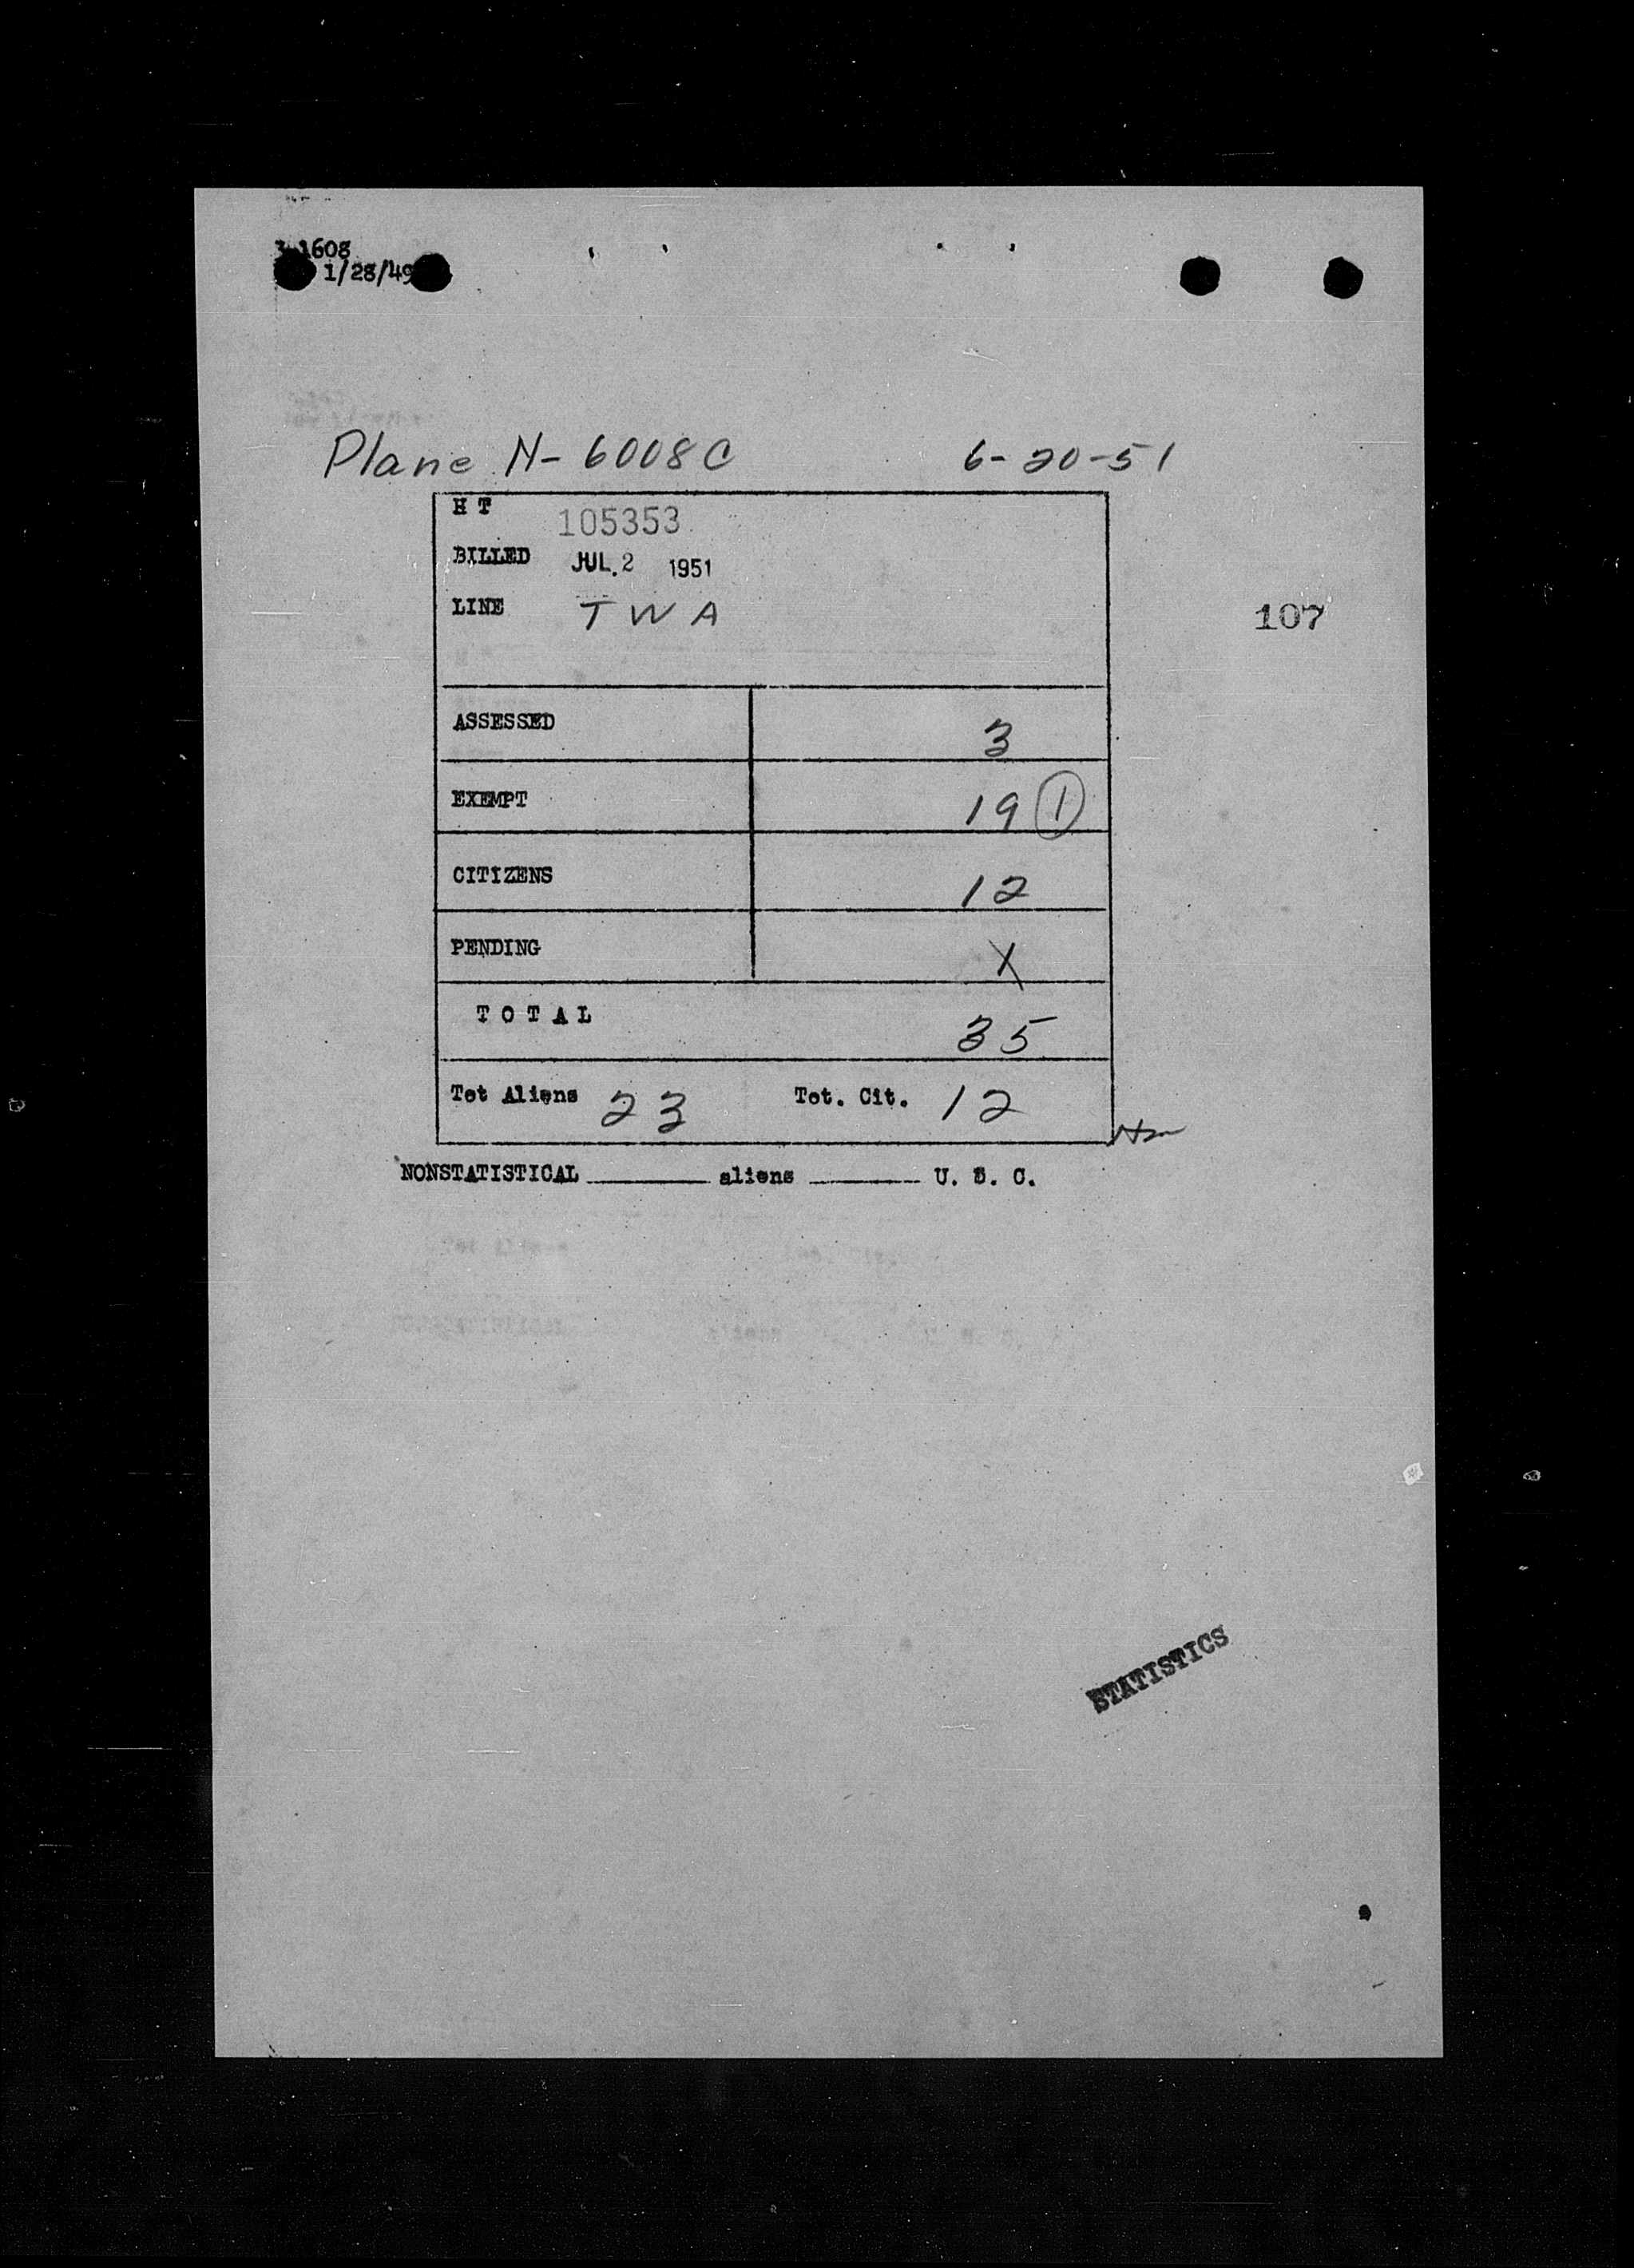 1608
1/28/49
Plane N-6008C 6-20-51
H T 105353
BILLED JUL. 2 1951
LINE TWA
107
ASSESSED 3
EXEMPT 19 (1)
CITIZENS 12
PENDING X
TOTAL 35
Tot Aliens 23 Tot. Cit. 12
NONSTATISTICAL ______ aliens ______ U. S. C.
STATISTICS